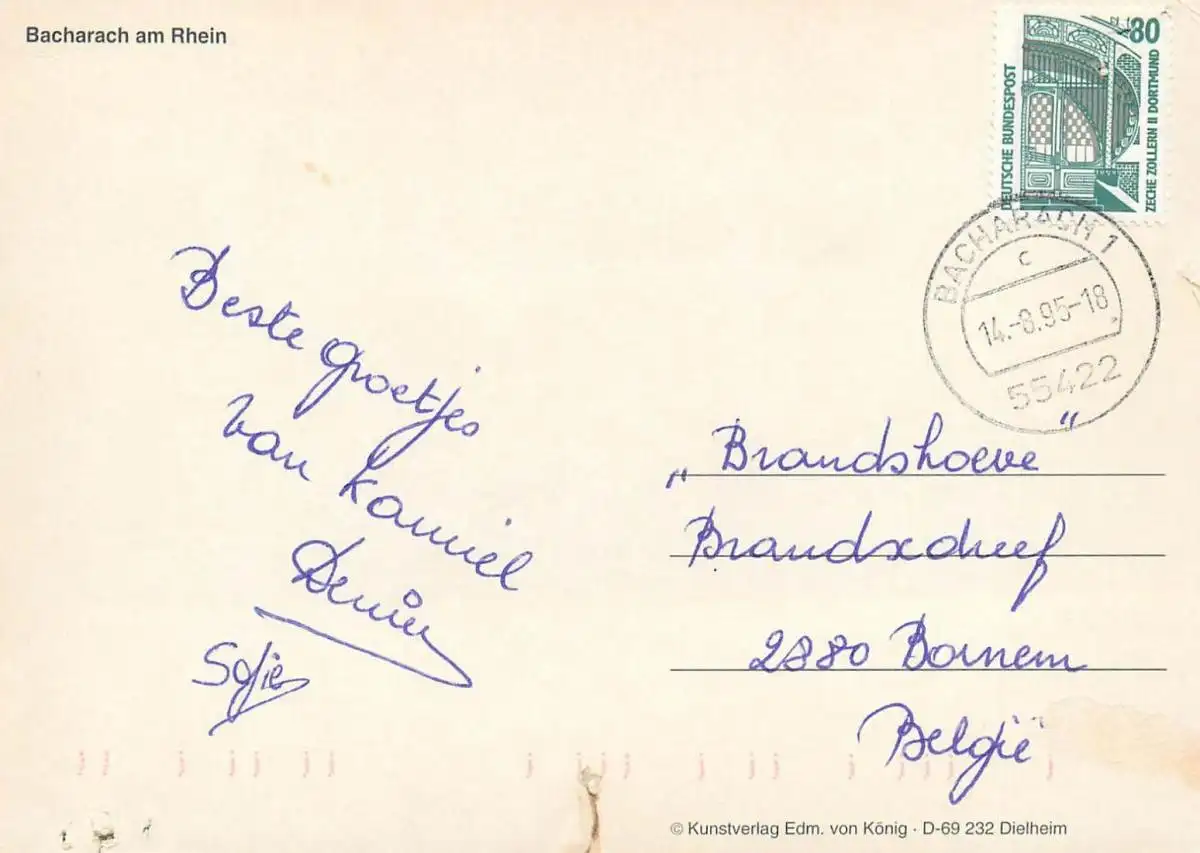 Bacharach am Rhein
80
DEUTSCHE BUNDESPOST
ZECHE ZOLLERN II DORTMUND
BACHARACH 1
c
14.-8.95-18
55422
Beste groetjes
van Kamiel
Denise
Sofie
„Brandshoeve“
Brandxdreef
2880 Bornem
België
© Kunstverlag Edm. von König · D-69 232 Dielheim